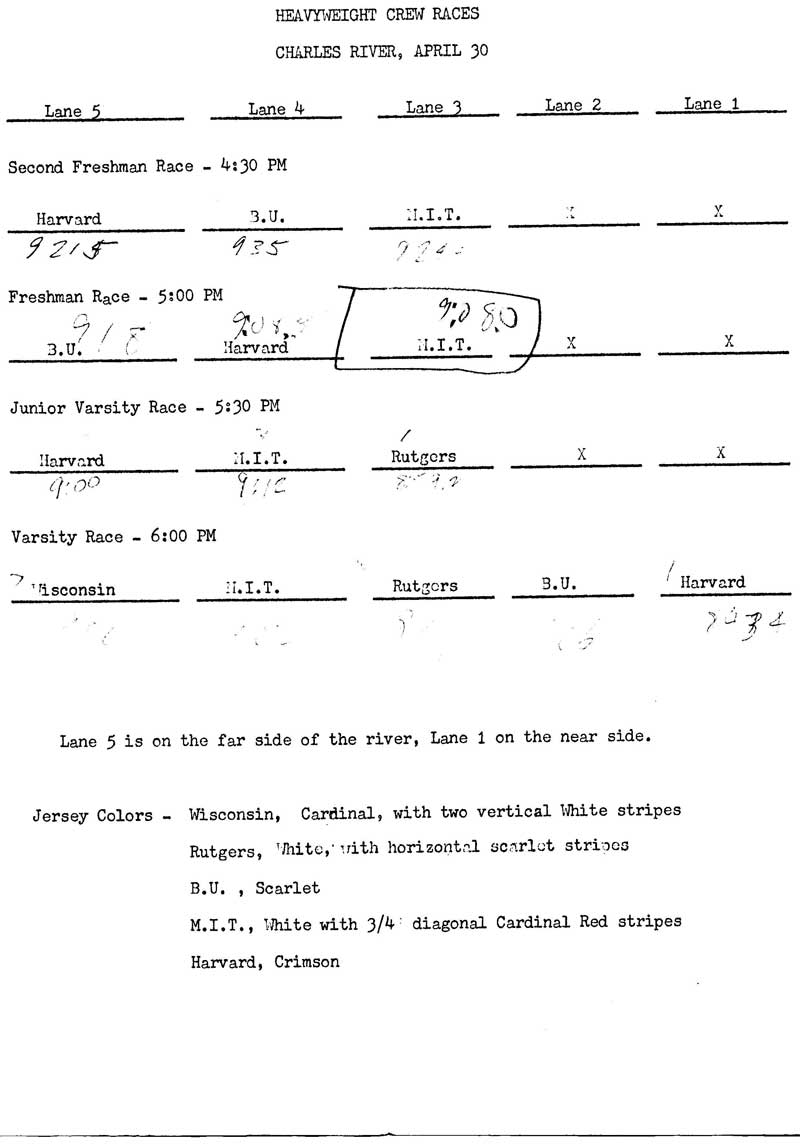 HEAVYWEIGHT CREW RACES
CHARLES RIVER, APRIL 30
Lane 5 Lane 4 Lane 3 Lane 2 Lane 1
Second Freshman Race - 4:30 PM
Harvard B.U. M.I.T. X X
9215 935
Freshman Race - 5:00 PM
918 9:08.0
B.U. Harvard M.I.T. X X
Junior Varsity Race - 5:30 PM
Harvard M.I.T. Rutgers X X
9:00
Varsity Race - 6:00 PM
Wisconsin M.I.T. Rutgers B.U. Harvard
Lane 5 is on the far side of the river, Lane 1 on the near side.
Jersey Colors - Wisconsin, Cardinal, with two vertical White stripes
Rutgers, White, with horizontal scarlet stripes
B.U. , Scarlet
M.I.T., White with 3/4" diagonal Cardinal Red stripes
Harvard, Crimson